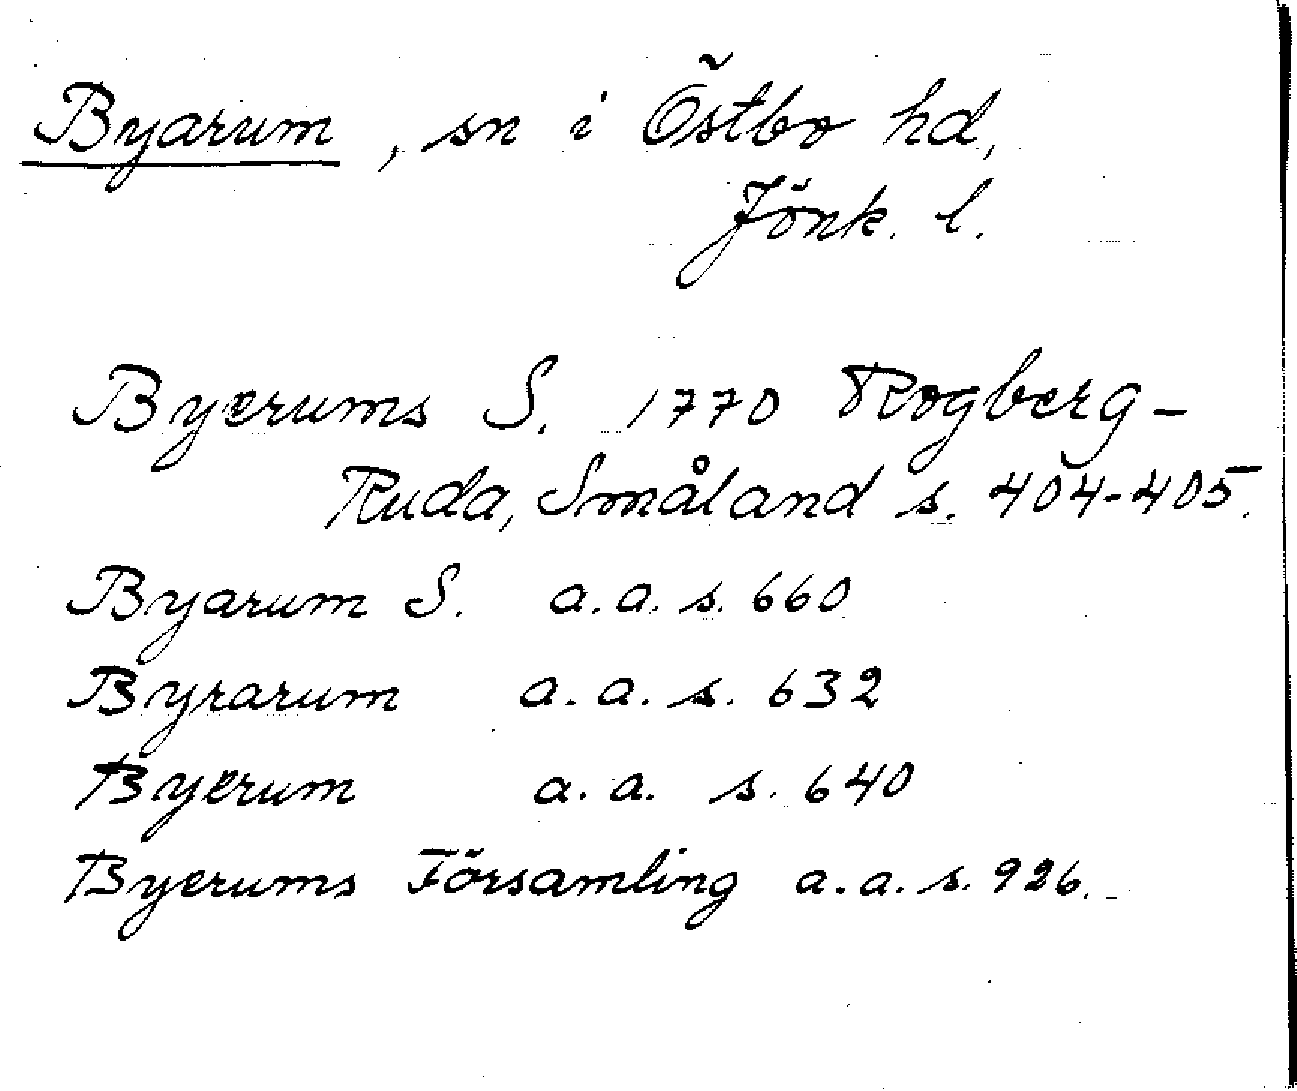 Byarum, sn i Östbo hd,
Jönk. l.
Byerums S. 1770 Rogberg-
Ruda, Småland s. 404-405.
Byarum S. a.a. s. 660
Byrarum a.a. s. 632
Byerum a.a. s. 640
Byerums Församling a.a. s. 926.